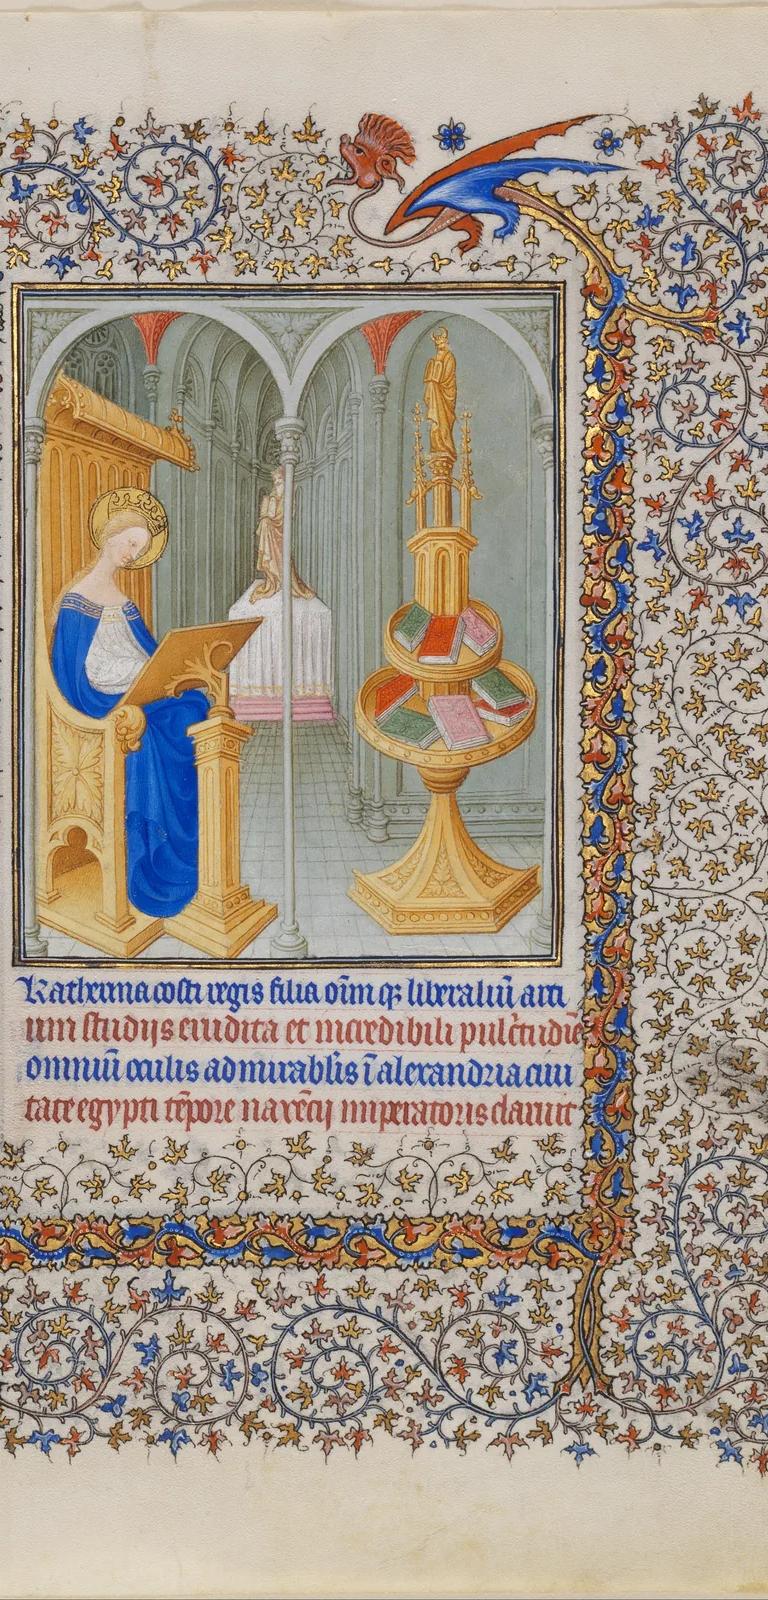 Katherina costi regis filia oīm q̄ȝ liberaliū arti
um studijs erudita et incredibili pulc̄tudīe
omniū oculis admirabil̄is ī alexandria ciui
tate egypti tēpore maxēcij imperatoris claruit